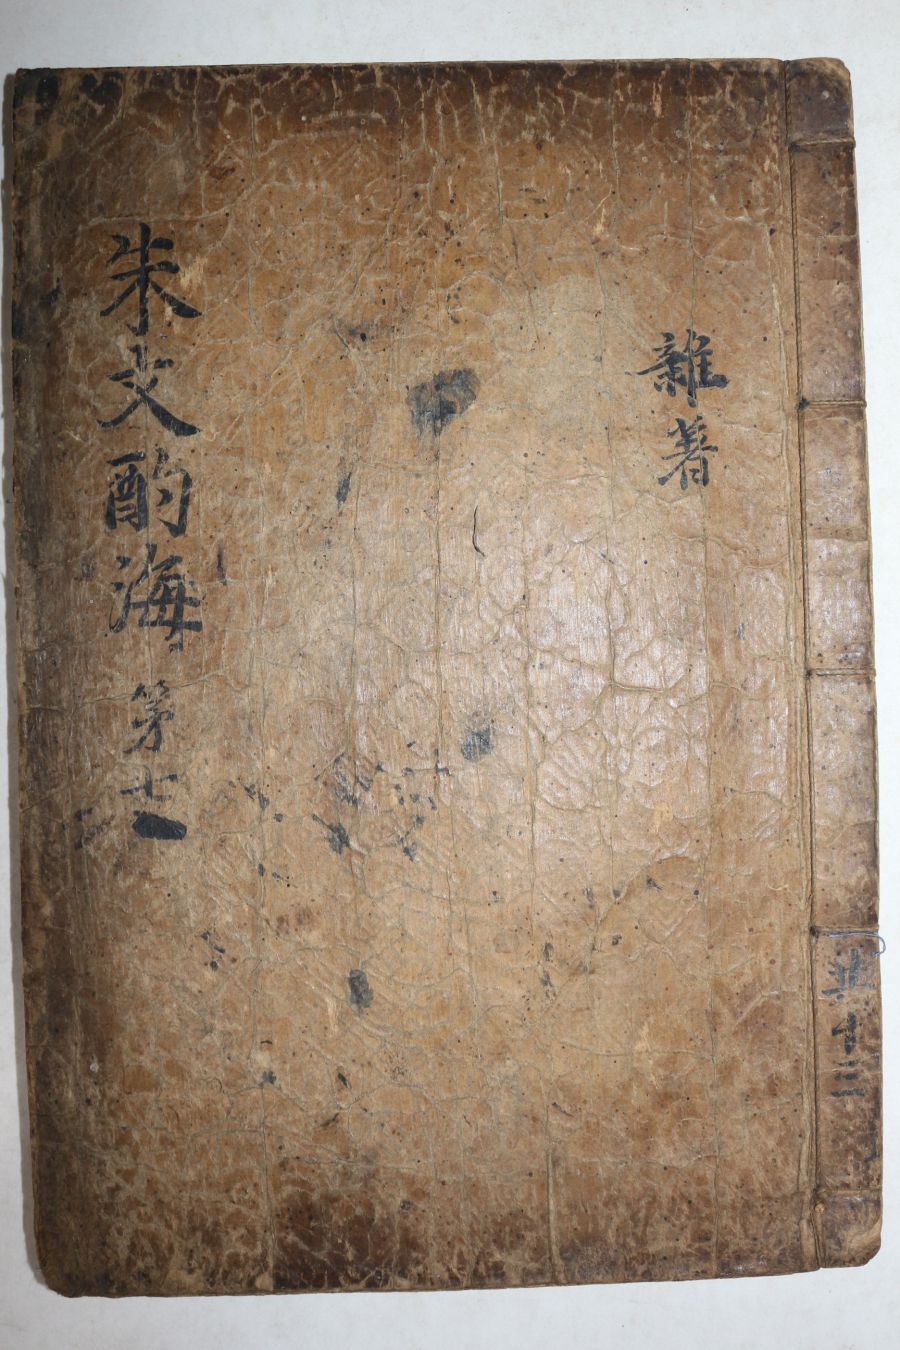 雜著
朱文酌海 第七
共十三